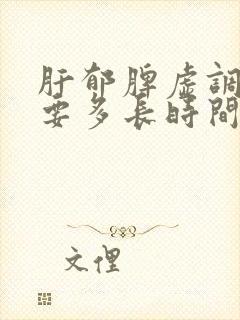 肝郁脾虚調
要多長時間
文俚